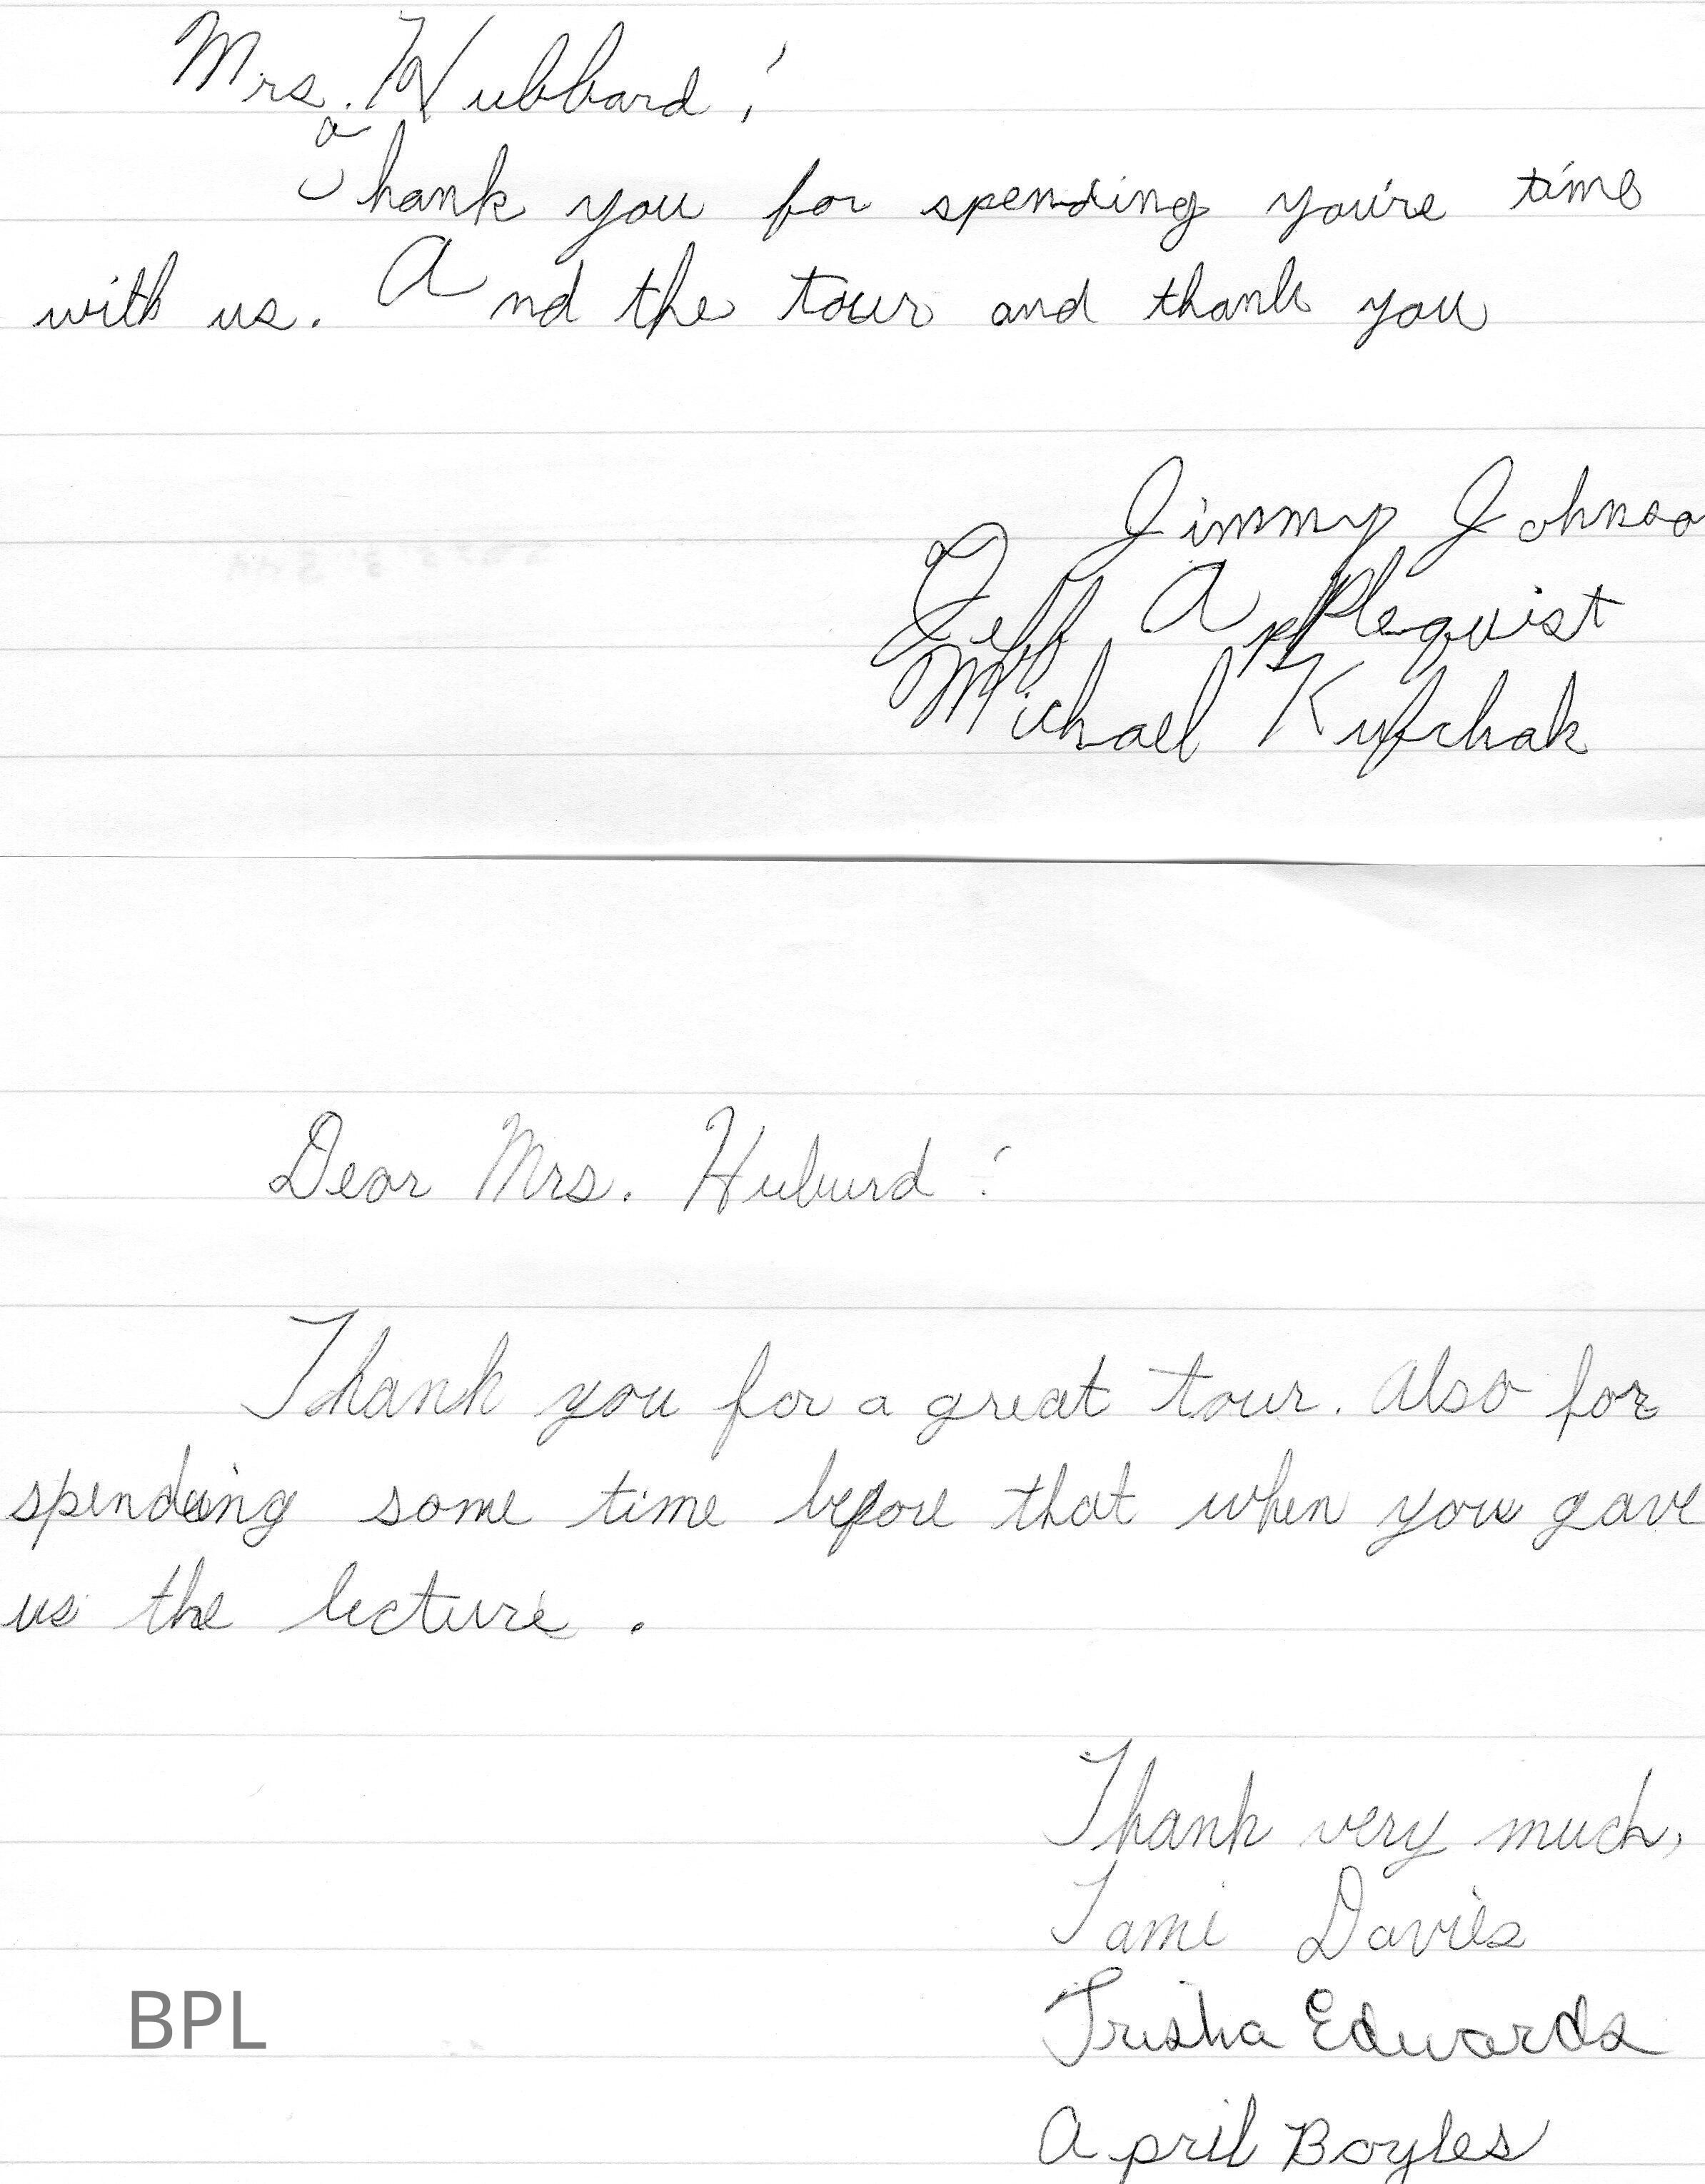 Mrs. Hubbard;
Thank you for spending you're time
with us. And the tour and thank you
Jimmy Johnso
Jeff Applequist
Michael Kyfchak
Dear Mrs. Huburd:
Thank you for a great tour. Also for
spending some time before that when you gave
us the lecture.
Thank very much,
Tami Davies
Trisha Edwards
BPL
April Boyles